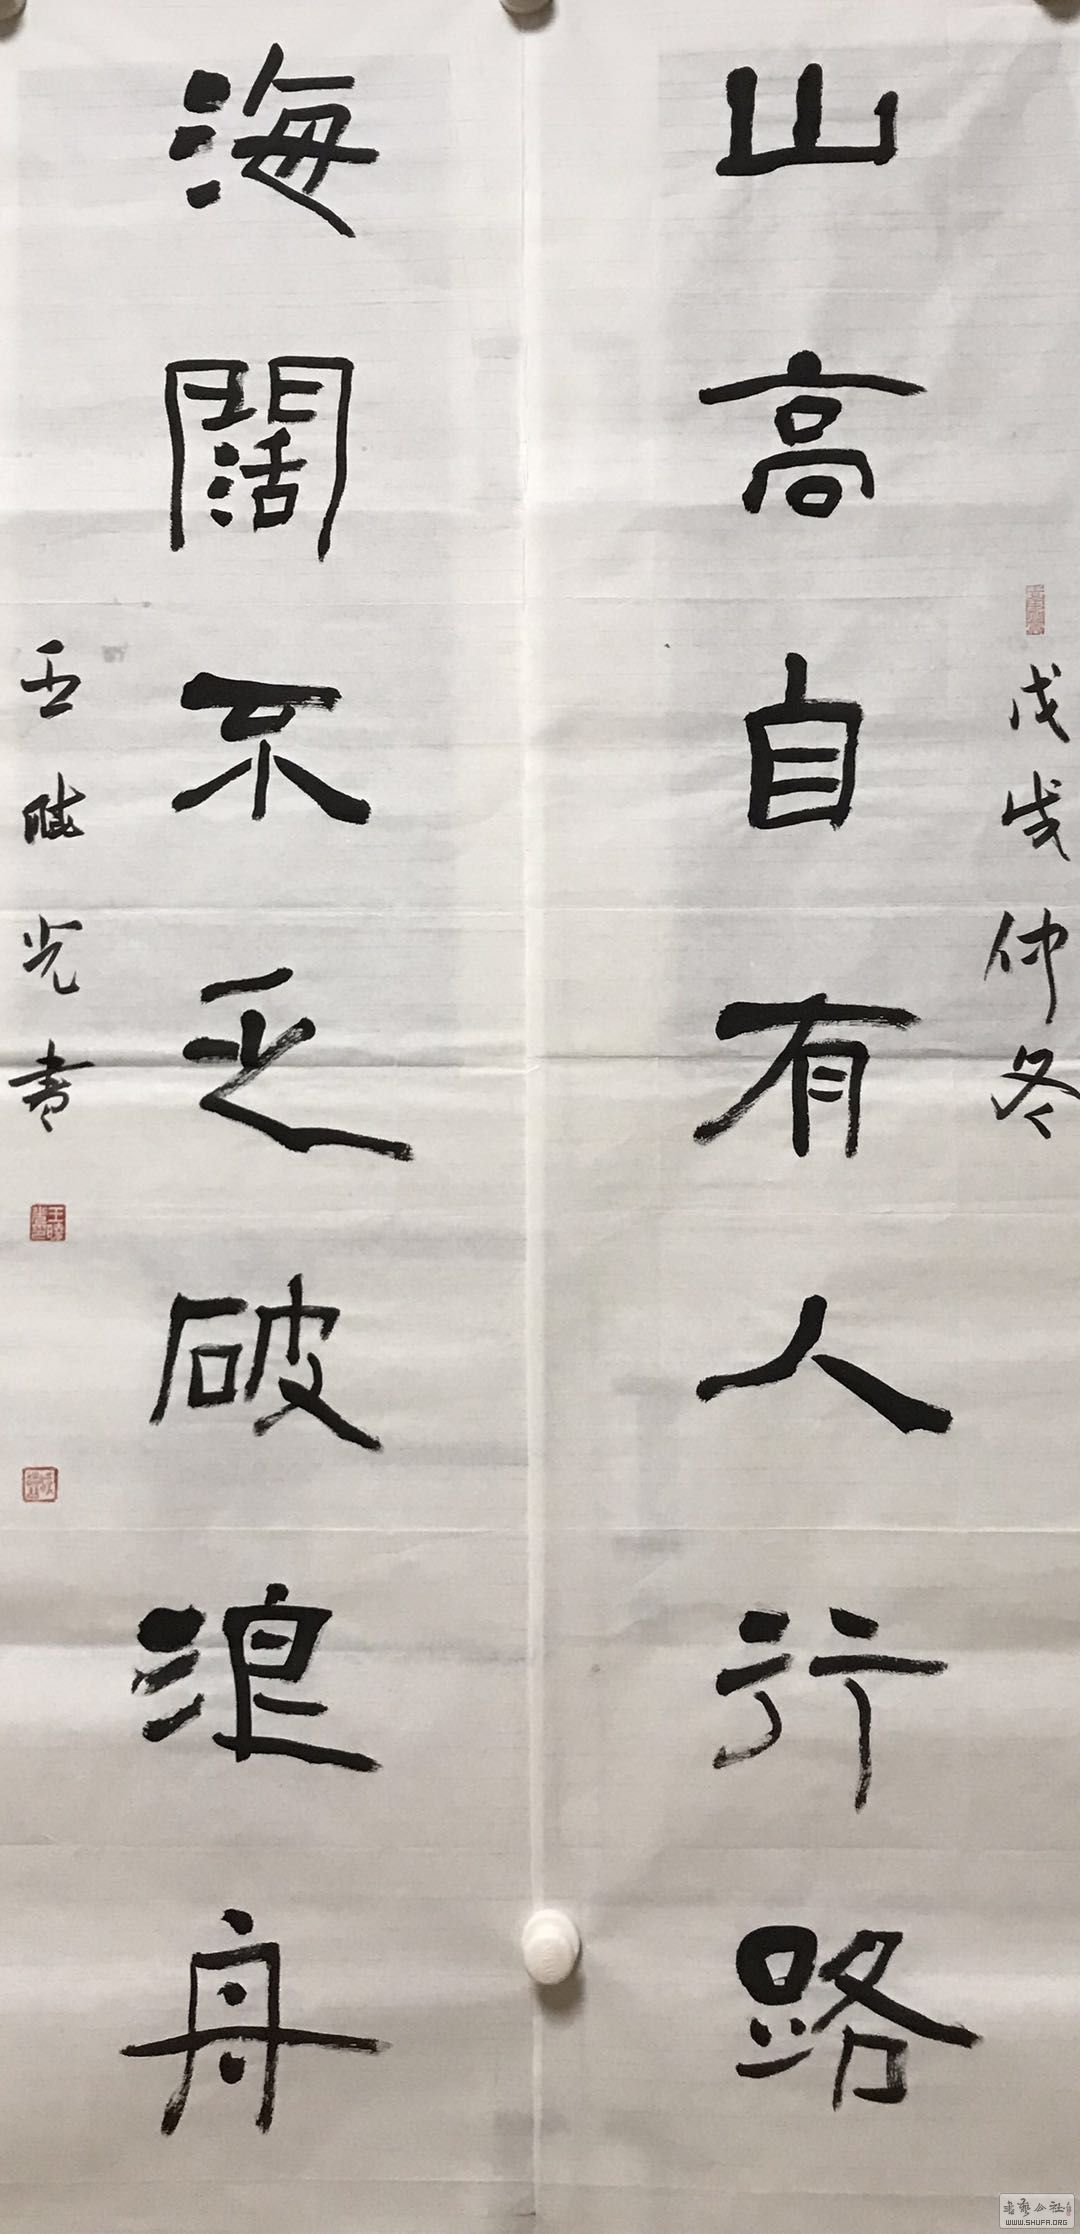 山高自有人行路
戊戌仲冬
海闊不乏破浪舟
王曉光書
書藝公社
WWW.SHUFA.ORG